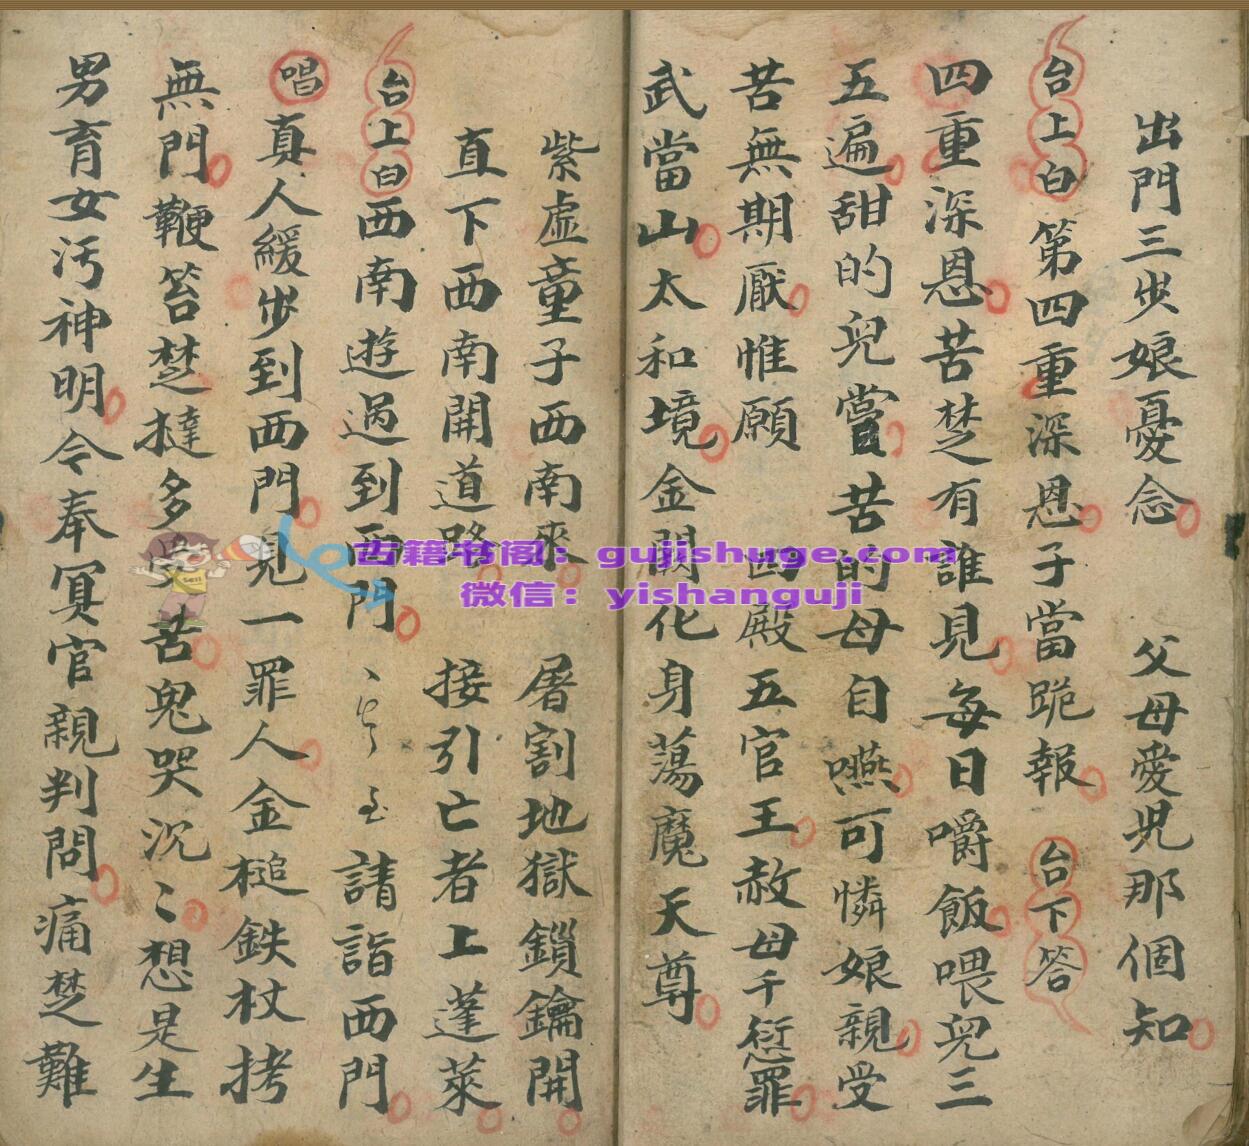 出門三步娘憂念 父母愛児那個知
台上白第四重深恩子當跪報 台下答
四重深恩苦楚有誰見每日嚼飯喂兒三
五遍甜的兒嘗苦的母自嚥可憐娘親受
苦無期厭惟願 四殿五官王赦母千愆罪
武當山太和境金闕化身蕩魔天尊
紫虛童子西南來 屠割地獄鎖鑰開
直下西南開道路 接引亡者上蓬萊
台上白西南遊過到西門 請詣西門
唱真人緩步到西門見一罪人金槌鉄杖拷
無門鞭笞楚撻多苦鬼哭沉〻想是生
男育女汚神明今奉冥官親判問痛楚難
古籍书阁：gujishuge.com
微信：yishanguji